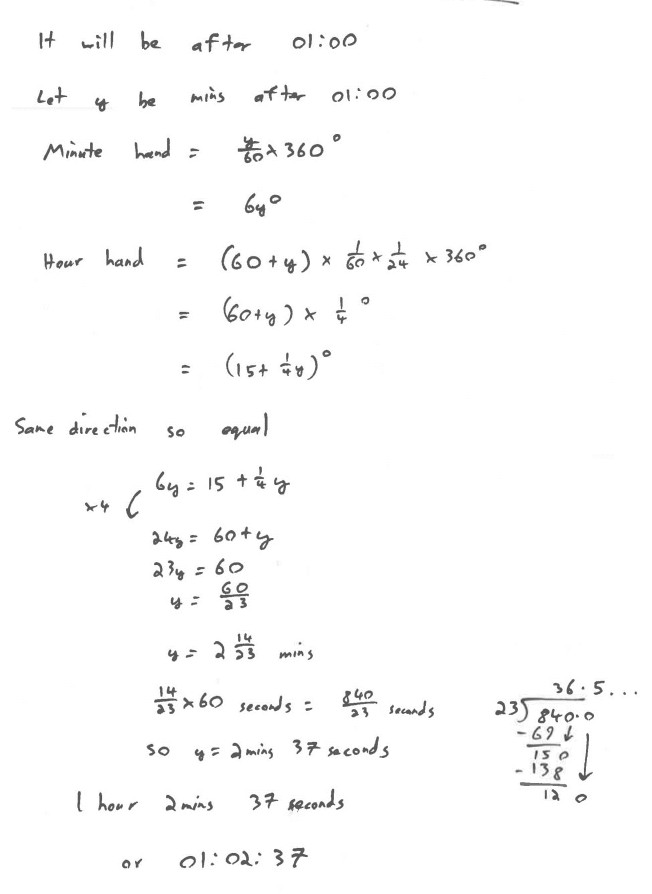 It will be after 01:00
Let y be mins after 01:00
Minute hand = y/60 × 360°
= 6y°
Hour hand = (60+y) × 1/60 × 1/24 × 360°
= (60+y) × 1/4 °
= (15 + 1/4 y)°
Same direction so equal
×4 ( 6y = 15 + 1/4 y
24y = 60+y
23y = 60
y = 60/23
y = 2 14/23 mins
14/23 × 60 seconds = 840/23 seconds
so y = 2mins 37 seconds
36.5...
23)840.0
-69↓
150
-138↓
12 0
1 hour 2mins 37 seconds
or 01:02:37